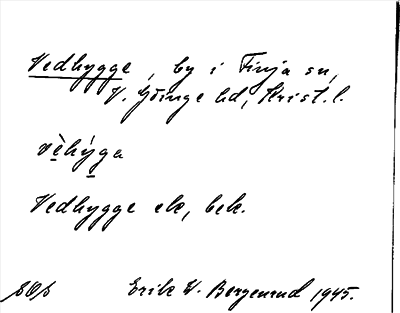 Vedhygge, by i Finja sn,
V. Göinge hd, Krist. l.
vèhýga
Vedhygge ek, bek.
Erik W. Bergenrud 1945.